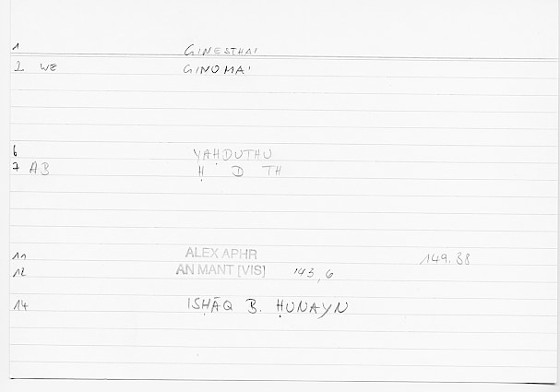 1 GINESTHAI
2 WE GINOMAI
6 YAḤDUTHU
7 AB Ḥ D TH
11 ALEX APHR 149.88
12 AN MANT [VIS] 143,6
14 ISḤĀQ B. ḤUNAYN